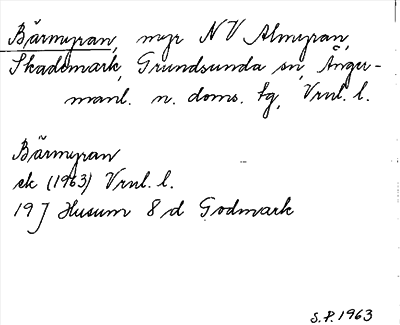 Bärmyran, myr NV Almyran,
Skademark, Grundsunda sn, Ånger-
manl. n. doms. tg, Vrnl. l.
Bärmyran
ek (1963) Vrnl. l.
19 J Husum 8 d Godmark
S.P. 1963